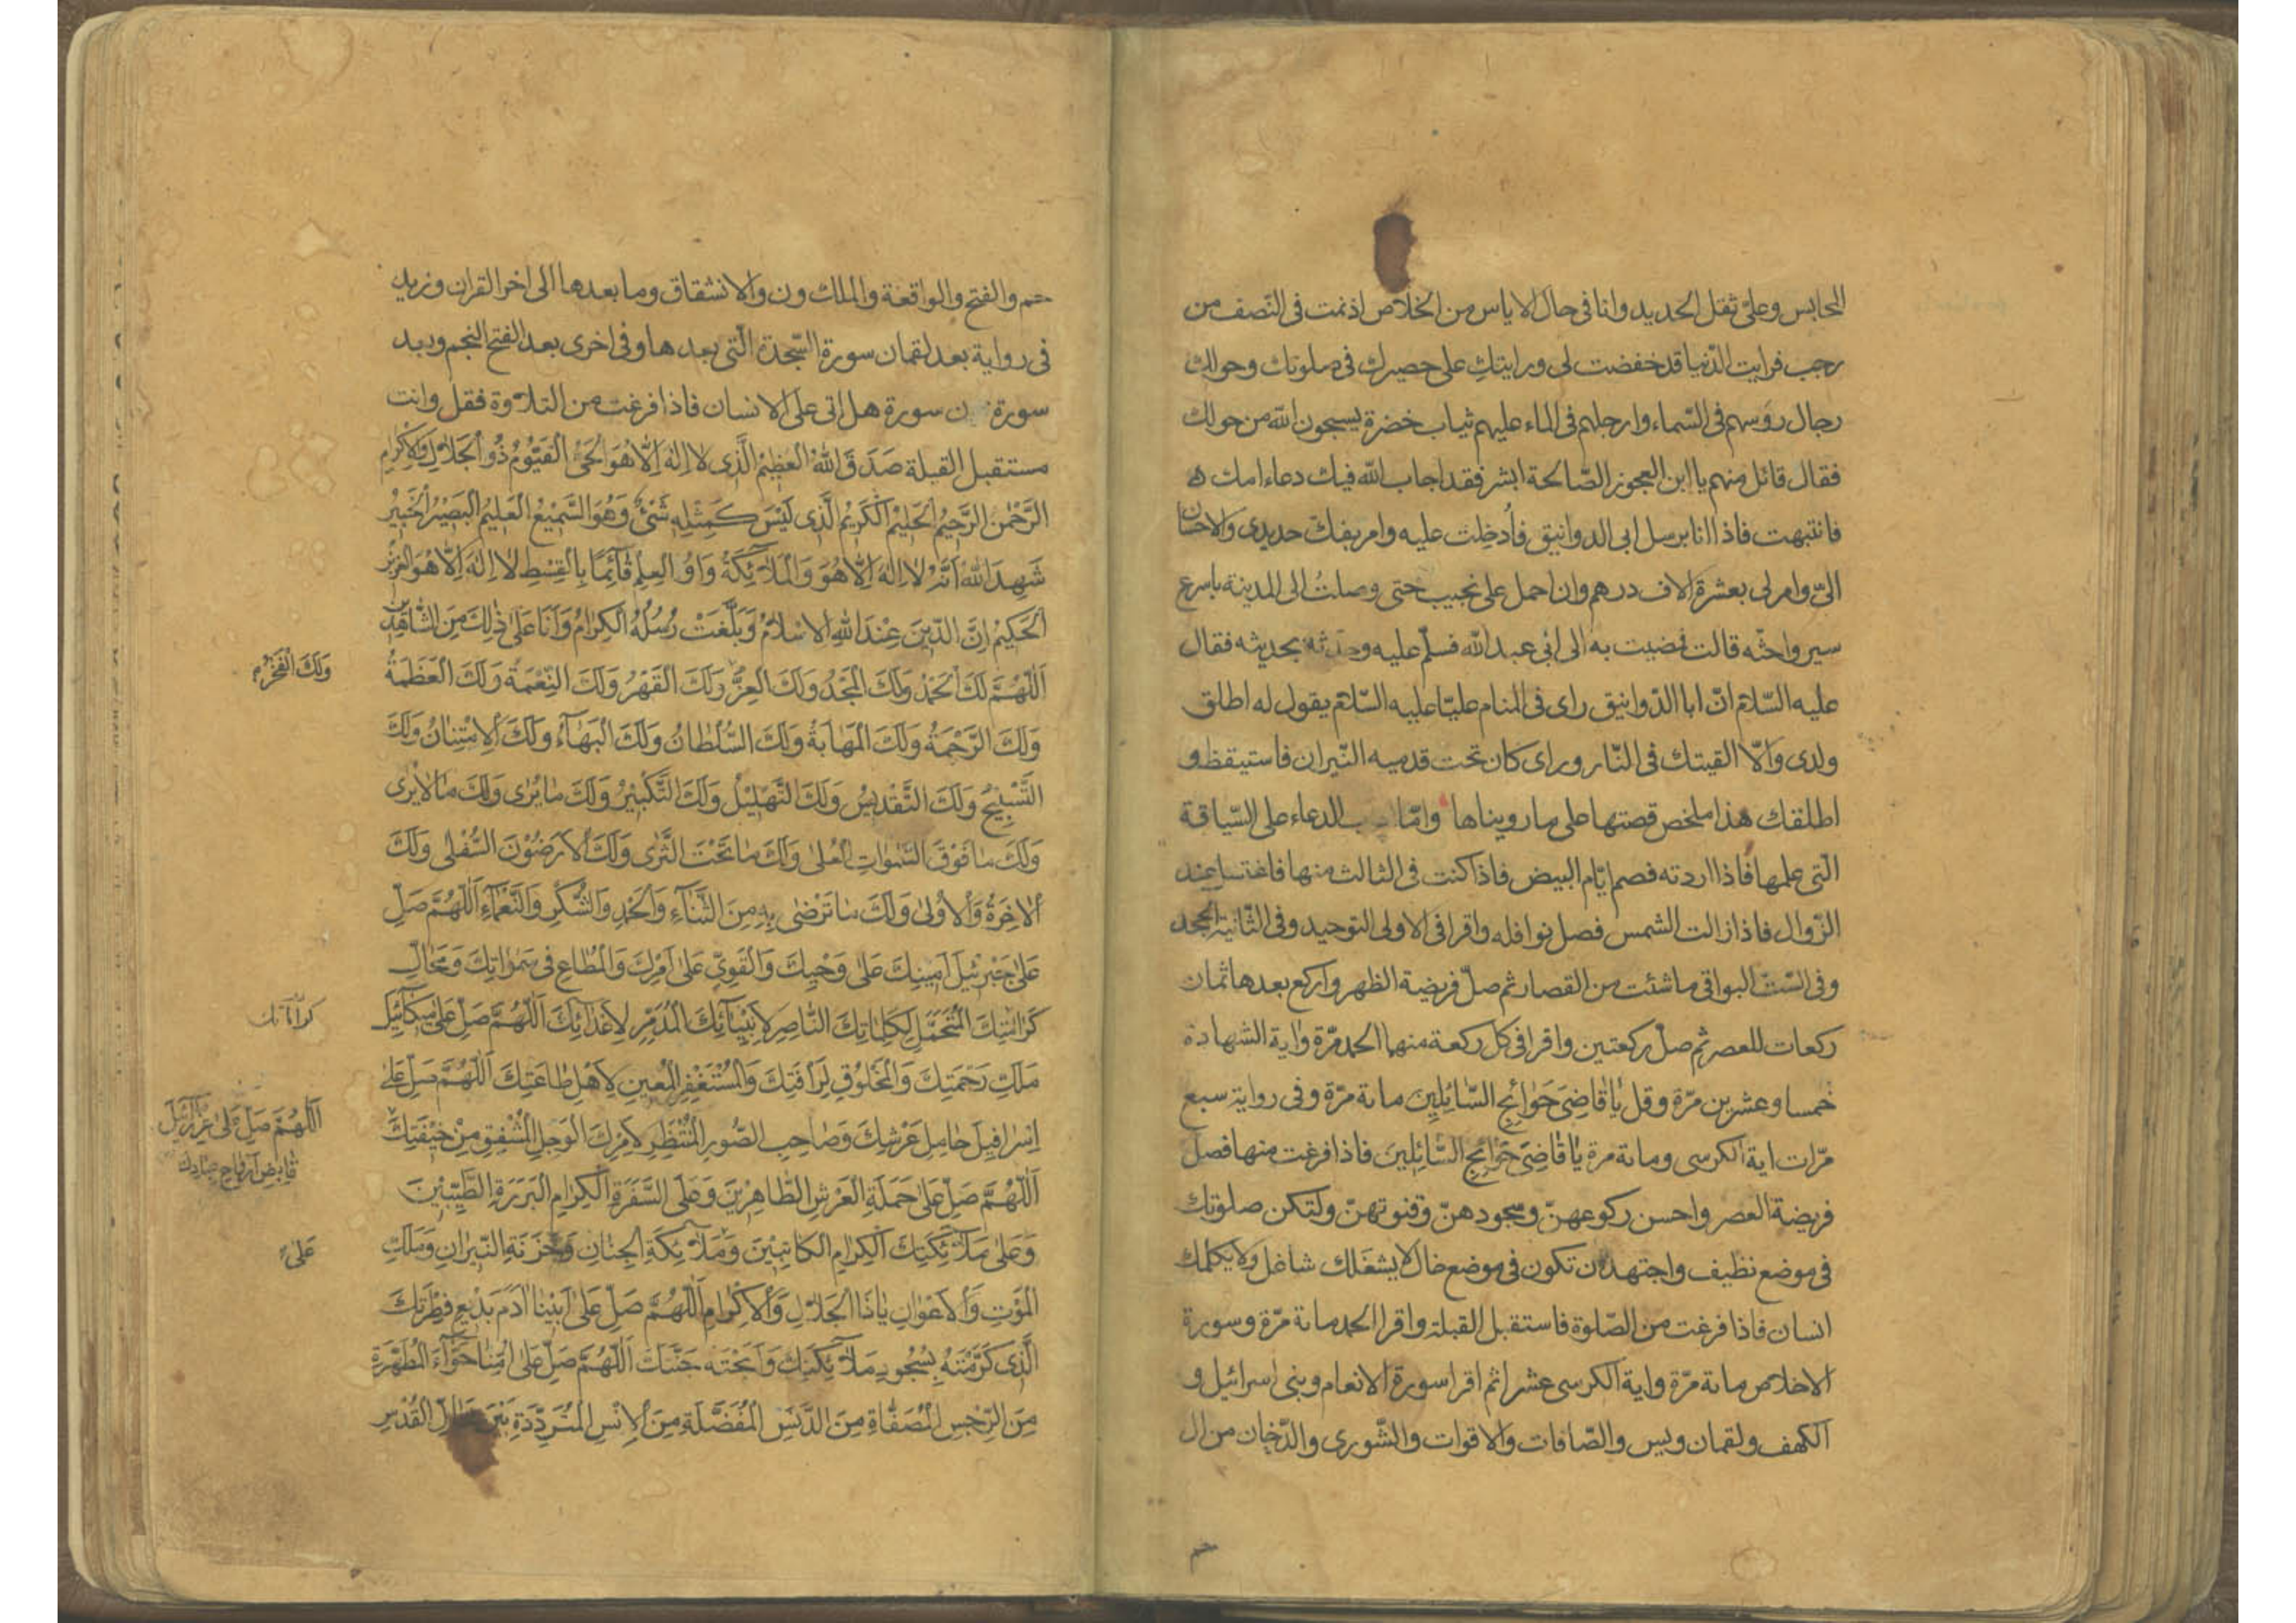 المحابس وعليّ ثقل الحديد وانا في حال الاياس من الخلاص اذ نمت في النّصف من
رجب فرايت الدّنيا قد خفضت لي ورايتكِ على حصيرك في صلوتك وحولك
رجال رؤسهم في السّماء وارجلهم في الماء عليهم ثياب خضرة يسبحون الله من حولك
فقال قائل منهم يا ابن العجوز الصّالحة ابشر فقد اجاب الله فيك دعاء امك ه
فانتبهت فاذا انا برسل ابي الدوانيق فاُدخِلت عليه وامر بفك حديدي والاحسان
اليّ وامر لي بعشرة الاف درهم وان احمل على نجيب حتى وصلتُ الى المدينة باسرع
سير واحثّه قالت فمضيت به الى ابي عبد الله فسلّم عليه وحدثه بحديثه فقال
عليه السّلام انّ ابا الدّوانيق راى في المنام عليّا عليه السّلام يقول له اطلق
ولدي والّا القيتك في النّار وراى كان تحت قدميه النّيران فاستيقظ و
اطلقك هذا ملخص قصتها على ما رويناها وامّا الدعاء على السّياقة
الّتي علمها فاذا اردته فصم ايّام البيض فاذا كنت في الثالث منها فاغتسل عند
الزّوال فاذا زالت الشمس فصل نوافله واقرا في الاولى التوحيد وفي الثّانية الجحد
وفي السّتّ البواقي ما شئت من القصار ثم صلّ فريضة الظهر واركع بعدها ثمان
ركعات للعصر ثم صلّ ركعتين واقرا في كل ركعة منهما الحمد مرّة واية الشهادة
خمسا وعشرين مرّة وقل يَا قَاضِيَ حَوَائِجِ السَّائِلِينَ مائة مرّة وفي رواية سبع
مرّات اية الكرسي ومائة مرة يَا قَاضِيَ حَوَائِجِ السَّائِلِينَ فاذا فرغت منها فصل
فريضة العصر واحسن ركوعهنّ وسجودهنّ وقنوتهنّ ولتكن صلوتك
في موضع نظيف واجتهد ان تكون في موضع خال لا يشغلك شاغل ولا يكلمك
انسان فاذا فرغت من الصّلوة فاستقبل القبلة واقرا الحمد مائة مرّة وسورة
الاخلاص مائة مرّة واية الكرسي عشرا ثم اقرا سورة الانعام وبني اسرائيل و
الكهف ولقمان ويس والصّافات والاقوات والشّورى والدّخان من ال
حم
حم والفتح والواقعة والملك ون والانشقاق وما بعدها الى اخر القران وزيد
في رواية بعد لقمان سورة السّجدة الّتي بعدها وفي اخرى بعد الفتح النجم وبعد
سورة ن سورة هل اتى على الانسان فاذا فرغت من التلاوة فقل وانت
مستقبل القبلة صَدَقَ اللهُ الْعَظِيمُ الَّذِي لَا اِلٰهَ اِلَّا هُوَ الْحَيُّ الْقَيُّومُ ذُو الْجَلَالِ وَالْاِكْرَامِ
الرَّحْمٰنُ الرَّحِيمُ الْحَلِيمُ الْكَرِيمُ الَّذِي لَيْسَ كَمِثْلِهِ شَيْءٌ وَهُوَ السَّمِيعُ الْعَلِيمُ الْبَصِيرُ الْخَبِيرُ
شَهِدَ اللهُ اَنَّهُ لَا اِلٰهَ اِلَّا هُوَ وَالْمَلَائِكَةُ وَاُولُو الْعِلْمِ قَائِمًا بِالْقِسْطِ لَا اِلٰهَ اِلَّا هُوَ الْعَزِيزُ
الْحَكِيمُ اِنَّ الدِّينَ عِنْدَ اللهِ الْاِسْلَامُ وَبَلَّغَتْ رُسُلُهُ الْكِرَامُ وَاَنَا عَلَى ذٰلِكَ مِنَ الشَّاهِدِينَ
اَللّٰهُمَّ لَكَ الْحَمْدُ وَلَكَ الْمَجْدُ وَلَكَ الْعِزُّ وَلَكَ الْقَهْرُ وَلَكَ النِّعْمَةُ وَلَكَ الْعَظَمَةُ
وَلَكَ الْفَخْرُ
وَلَكَ الرَّحْمَةُ وَلَكَ الْمَهَابَةُ وَلَكَ السُّلْطَانُ وَلَكَ الْبَهَاءُ وَلَكَ الْاِمْتِنَانُ وَلَكَ
التَّسْبِيحُ وَلَكَ التَّقْدِيسُ وَلَكَ التَّهْلِيلُ وَلَكَ التَّكْبِيرُ وَلَكَ مَا يُرٰى وَلَكَ مَا لَا يُرٰى
وَلَكَ مَا فَوْقَ السَّمٰوَاتِ الْعُلٰى وَلَكَ مَا تَحْتَ الثَّرٰى وَلَكَ الْاَرَضُونَ السُّفْلٰى وَلَكَ
الْاٰخِرَةُ وَالْاُولٰى وَلَكَ مَا تَرْضٰى بِهِ مِنَ الثَّنَاءِ وَالْحَمْدِ وَالشُّكْرِ وَالنَّعْمَاءِ اَللّٰهُمَّ صَلِّ
عَلٰى جَبْرَئِيلَ اَمِينِكَ عَلٰى وَحْيِكَ وَالْقَوِيِّ عَلٰى اَمْرِكَ وَالْمُطَاعِ فِي سَمٰوَاتِكَ وَمَحَالِّ
كَرَامَتِكَ الْمُتَحَمِّلِ لِكَلِمَاتِكَ النَّاصِرِ لِاَنْبِيَائِكَ الْمُدَمِّرِ لِاَعْدَائِكَ اَللّٰهُمَّ صَلِّ عَلٰى مِيكَائِيلَ
كراماتك
مَلَكِ رَحْمَتِكَ وَالْمَخْلُوقِ لِرَأْفَتِكَ وَالْمُسْتَغْفِرِ الْمُعِينِ لِاَهْلِ طَاعَتِكَ اَللّٰهُمَّ صَلِّ عَلٰى
اِسْرَافِيلَ حَامِلِ عَرْشِكَ وَصَاحِبِ الصُّورِ الْمُنْتَظِرِ لِاَمْرِكَ الْوَجِلِ الْمُشْفِقِ مِنْ خِيفَتِكَ
اَللّٰهُمَّ صَلِّ عَلٰى عِزْرَائِيلَ
قَابِضِ اَرْوَاحِ عِبَادِكَ
اَللّٰهُمَّ صَلِّ عَلٰى حَمَلَةِ الْعَرْشِ الطَّاهِرِينَ وَعَلَى السَّفَرَةِ الْكِرَامِ الْبَرَرَةِ الطَّيِّبِينَ
وَعَلٰى مَلَائِكَتِكَ الْكِرَامِ الْكَاتِبِينَ وَمَلَائِكَةِ الْجِنَانِ وَخَزَنَةِ النِّيرَانِ وَمَلَكِ
عَلٰى
الْمَوْتِ وَالْاَعْوَانِ يَا ذَا الْجَلَالِ وَالْاِكْرَامِ اَللّٰهُمَّ صَلِّ عَلٰى اَبِينَا اٰدَمَ بَدِيعِ فِطْرَتِكَ
الَّذِي كَرَّمْتَهُ بِسُجُودِ مَلَائِكَتِكَ وَاَبَحْتَهُ جَنَّتَكَ اَللّٰهُمَّ صَلِّ عَلٰى اُمِّنَا حَوَّاءَ الْمُطَهَّرَةِ
مِنَ الرِّجْسِ الْمُصَفَّاةِ مِنَ الدَّنَسِ الْمُفَضَّلَةِ مِنَ الْاِنْسِ الْمُتَرَدِّدَةِ بَيْنَ مَحَالِّ الْقُدْسِ